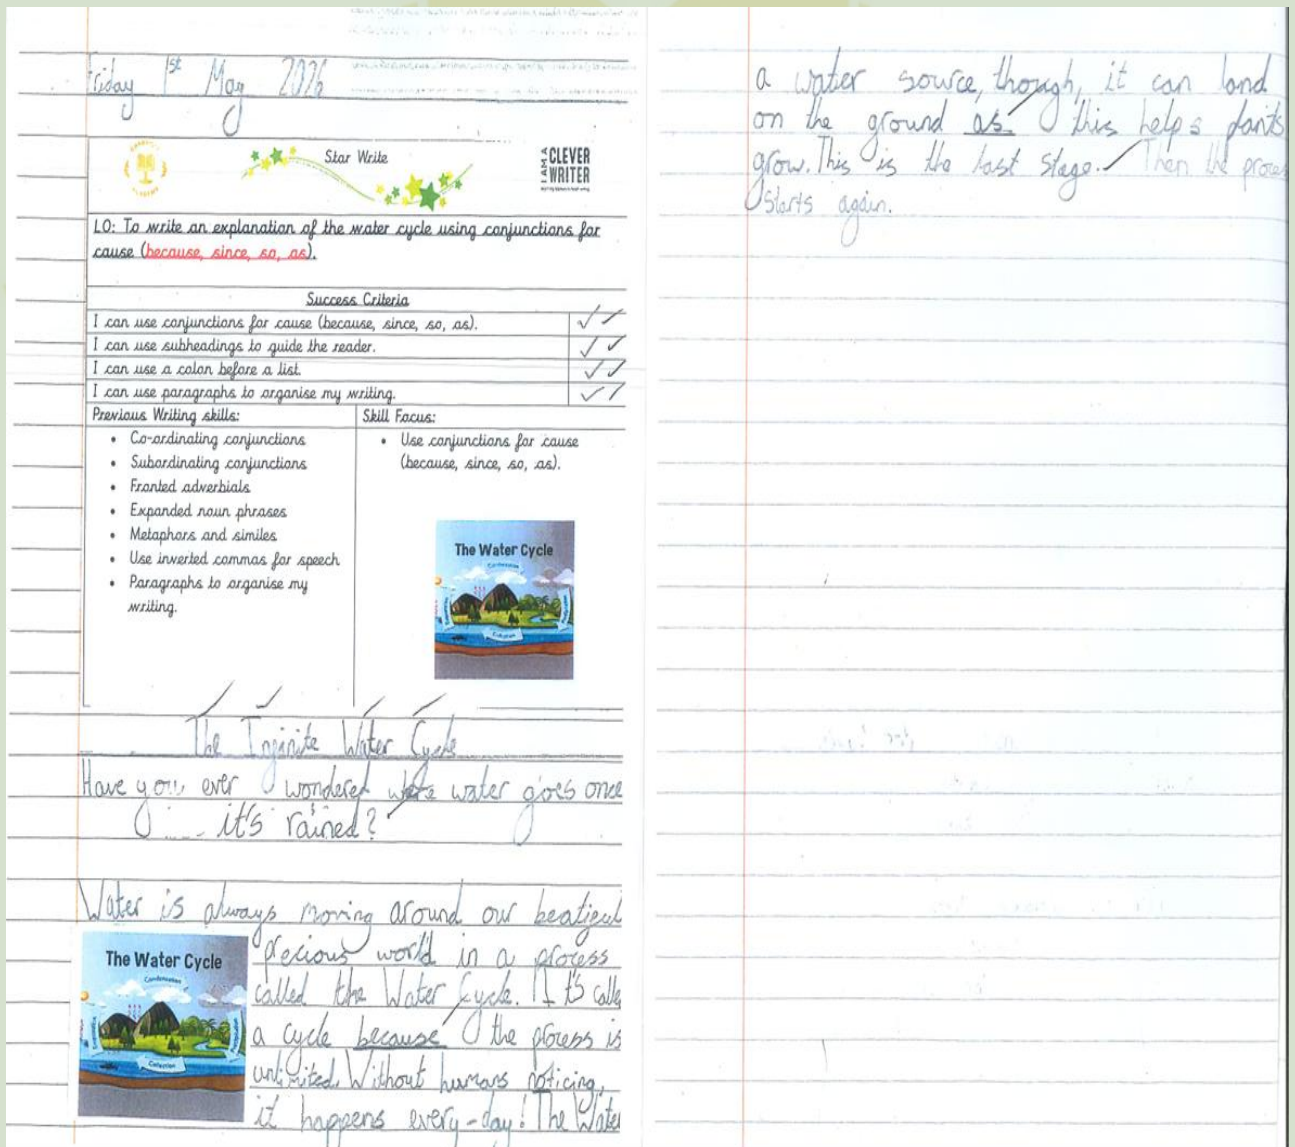 Friday 1st May 2026
Star Write
I AM A CLEVER WRITER
LO: To write an explanation of the water cycle using conjunctions for
cause (because, since, so, as).
Success Criteria
I can use conjunctions for cause (because, since, so, as).
I can use subheadings to guide the reader.
I can use a colon before a list.
I can use paragraphs to organise my writing.
Previous Writing skills:
• Co-ordinating conjunctions
• Subordinating conjunctions
• Fronted adverbials
• Expanded noun phrases
• Metaphors and similes
• Use inverted commas for speech
• Paragraphs to organise my
writing.
Skill Focus:
• Use conjunctions for cause
(because, since, so, as).
The Water Cycle
Condensation
The Infinite Water Cycle
Have you ever wondered where water goes once
it's rained?
Water is always moving around our beatiful
precious world in a process
The Water Cycle
Condensation
Collection
called the Water Cycle. It's calle
a cycle because the process is
unlimited. Without humans noticing,
it happens every-day! The Water
a water source, though, it can land
on the ground as this helps plants
grow. This is the last stage. Then the proces
starts again.